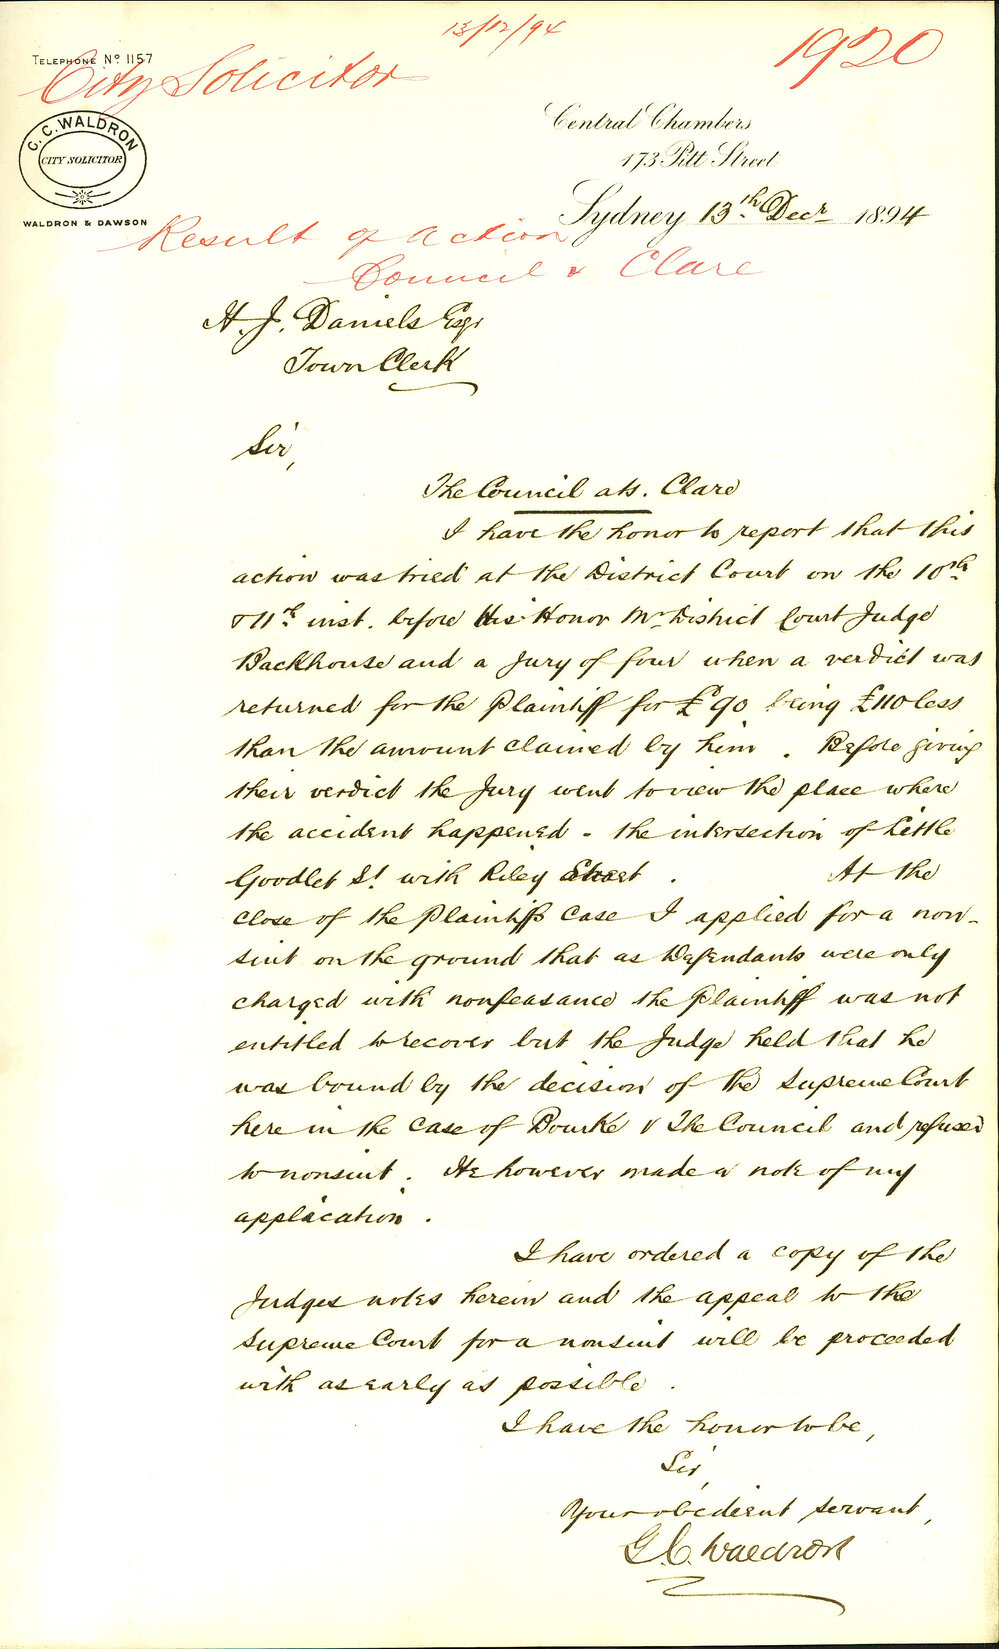 13/12/94
1920
TELEPHONE Nº 1157
City Solicitor
G. C. WALDRON
CITY SOLICITOR
WALDRON & DAWSON
Central Chambers
173 Pitt Street
Sydney 13th Decr 1894
Result of action
Council & Clare
H. J. Daniels Esqr
Town Clerk
Sir,
The Council ats. Clare
I have the honor to report that this
action was tried at the District Court on the 10th
& 11th inst. before His Honor Mr District Court Judge
Backhouse and a Jury of four when a verdict was
returned for the Plaintiff for £90 being £110 less
than the amount claimed by him. Before giving
their verdict the Jury went to view the place where
the accident happened - the intersection of Little
Goodlet St. with Riley Street. At the
close of the Plaintiffs case I applied for a non-
suit on the ground that as Defendants were only
charged with nonfeasance the Plaintiff was not
entitled to recover but the Judge held that he
was bound by the decision of the Supreme Court
here in the case of Bourke v The Council and refused
to nonsuit. He however made a note of my
application.
I have ordered a copy of the
Judges notes herein and the appeal to the
Supreme Court for a nonsuit will be proceeded
with as early as possible.
I have the honor to be,
Sir,
Your obedient servant,
G. C. Waldron